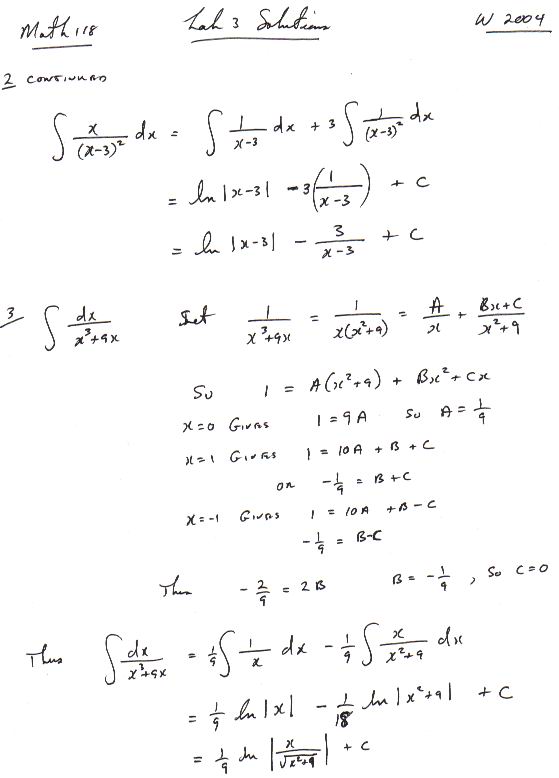 Math 118 Lab 3 Solutions W 2004
2 CONTINUED
∫ x/(x-3)² dx = ∫ 1/(x-3) dx + 3 ∫ 1/(x-3)² dx
= ln |x-3| - 3(1/(x-3)) + C
= ln |x-3| - 3/(x-3) + C
3 ∫ dx/(x³+9x) Let 1/(x³+9x) = 1/(x(x²+9)) = A/x + (Bx+C)/(x²+9)
So 1 = A(x²+9) + Bx² + Cx
x=0 GIVES 1 = 9A So A = 1/9
x=1 GIVES 1 = 10A + B + C
OR -1/9 = B + C
x=-1 GIVES 1 = 10A + B - C
-1/9 = B-C
Then -2/9 = 2B B = -1/9, So C=0
Thus ∫ dx/(x³+9x) = 1/9 ∫ 1/x dx - 1/9 ∫ x/(x²+9) dx
= 1/9 ln |x| - 1/18 ln |x²+9| + C
= 1/9 ln |x/√(x²+9)| + C